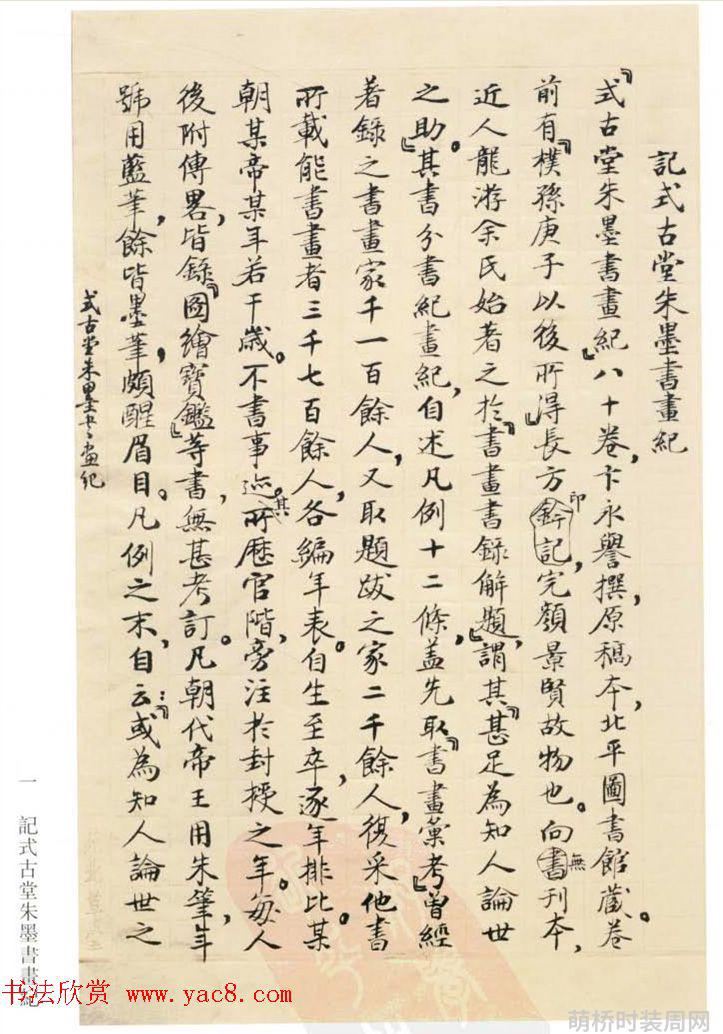 記式古堂朱墨書畫紀
『式古堂朱墨書畫紀』八十卷，卞永譽撰，原稿本，北平圖書館藏。卷
前有『樸孫庚子以後所得』長方鈐記，印完顏景賢故物也。向書無刊本，
近人龍游余氏始著之於『書畫書錄解題』，謂其『甚足為知人論世
之助』。其書分書紀畫紀，自述凡例十二條，蓋先取『書畫彙考』曾經
著錄之書畫家千一百餘人，又取題跋之家二千餘人，復采他書
所載能書畫者三千七百餘人，各編年表。自生至卒，逐年排比。某
朝某帝某年若干歲。不書事迹。其所歷官階，旁注於封授之年。每人
後附傳畧，皆錄『圖繪寶鑑』等書，無甚考訂。凡朝代帝王用朱筆，年
號用藍筆，餘皆墨筆，頗醒眉目。凡例之末，自云：『或為知人論世之
式古堂朱墨書畫紀
一 記式古堂朱墨書畫紀
书法欣赏 www.yac8.com
萌桥时装周网